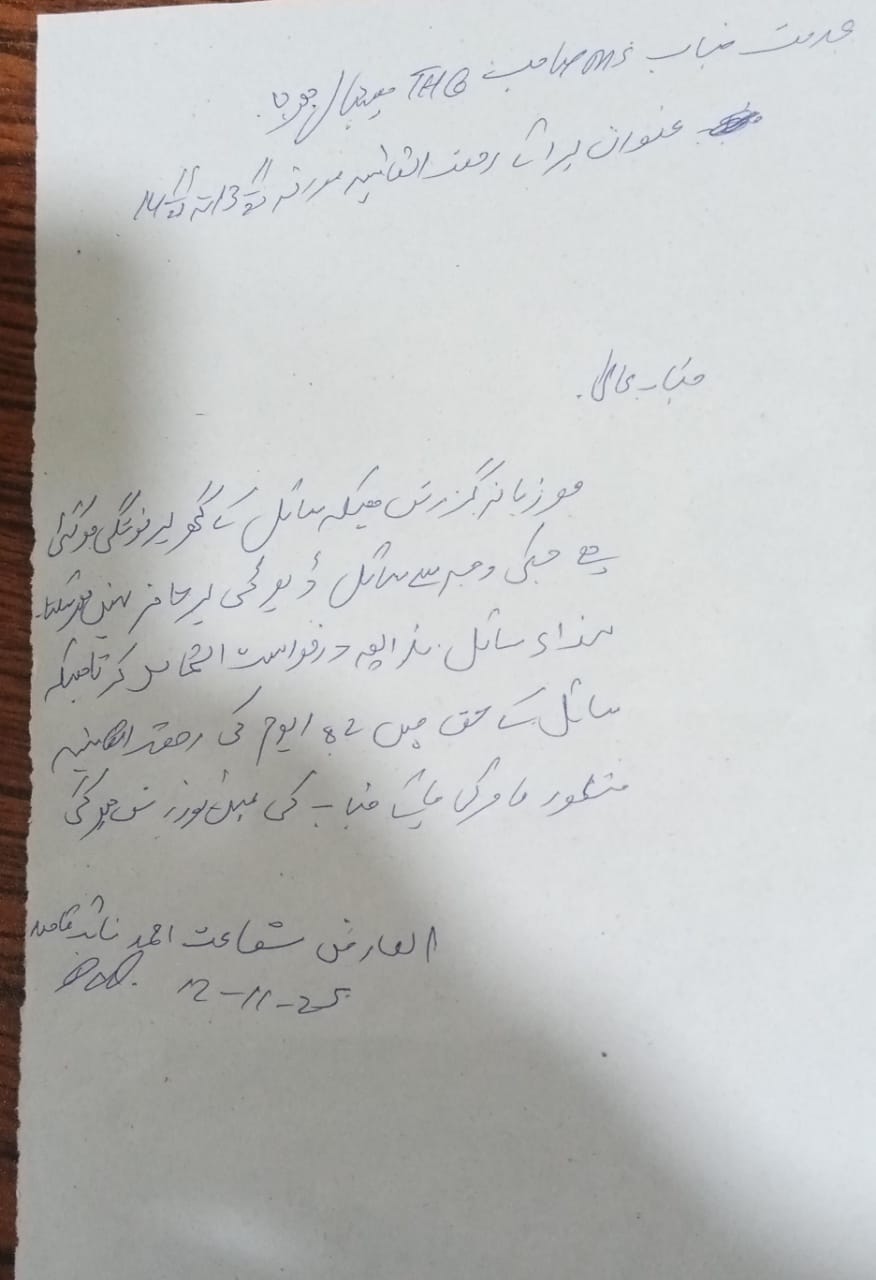 بخدمت جناب MS صاحب THQ ہسپتال
عنوان برائے رخصت اتفاقیہ مورخہ 13/11/25 تا 14/11/25
جناب عالی
مودبانہ گزارش ہیکہ سائل کے گھر پر فوتگی ہو گئی
ہے جسکی وجہ سے سائل ڈیوٹی پر حاضر نہیں ہو سکتا۔
لہذا سائل بذریعہ درخواست التماس کرتا ہیکہ
سائل کے حق میں 2 ایوم کی رخصت اتفاقیہ
منظور فرمائی جائے جناب کی عین نوازش ہو گی
العارض شفاعت احمد نائب قاصد
12-11-25